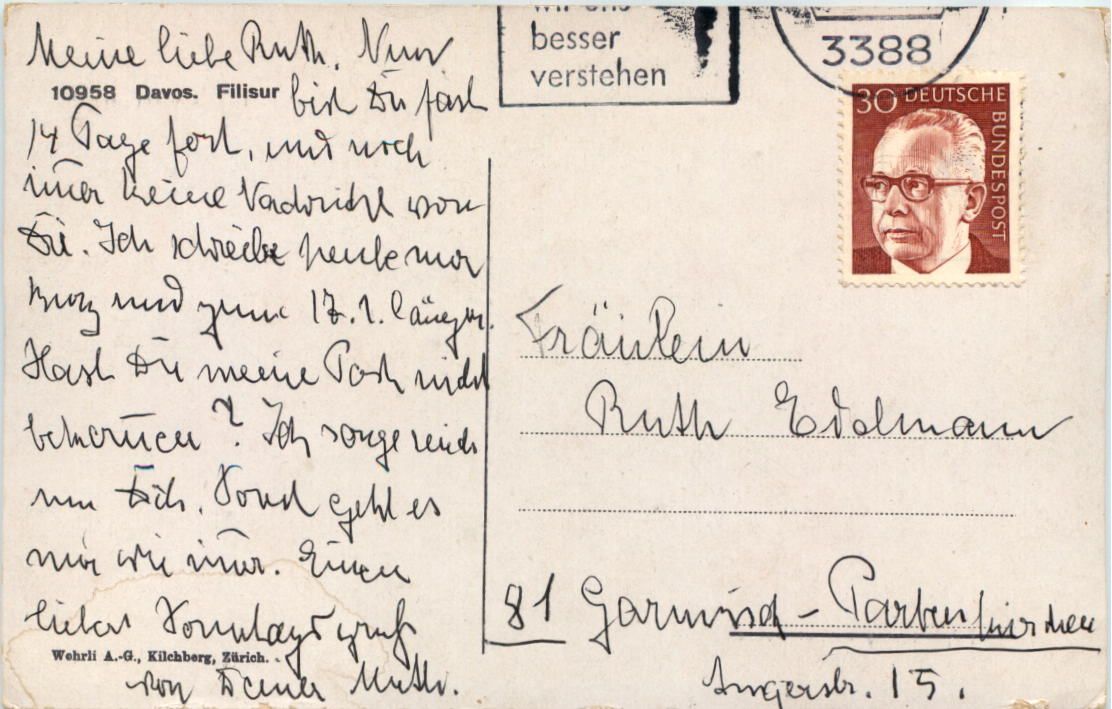 Meine liebe Ruth. Nun
10958 Davos. Filisur
bist Du fast
14 Tage fort, und noch
im̅er keine Nachricht von
Dir. Ich schreibe heute nur
kurz und zum 17.1. länger.
Hast Du meine Post nicht
bekom̅en? Ich sorge mich
um Dich. Sonst geht es
mir wie im̅er. Einen
lieben Sonntagsgruß
Wehrli A.-G., Kilchberg, Zürich.
von Deiner Mutti.
wir uns
besser
verstehen
3388
30 DEUTSCHE
BUNDESPOST
Fräulein
Ruth Edelmann
81 Garmisch-Partenkirchen
Angerstr. 15.